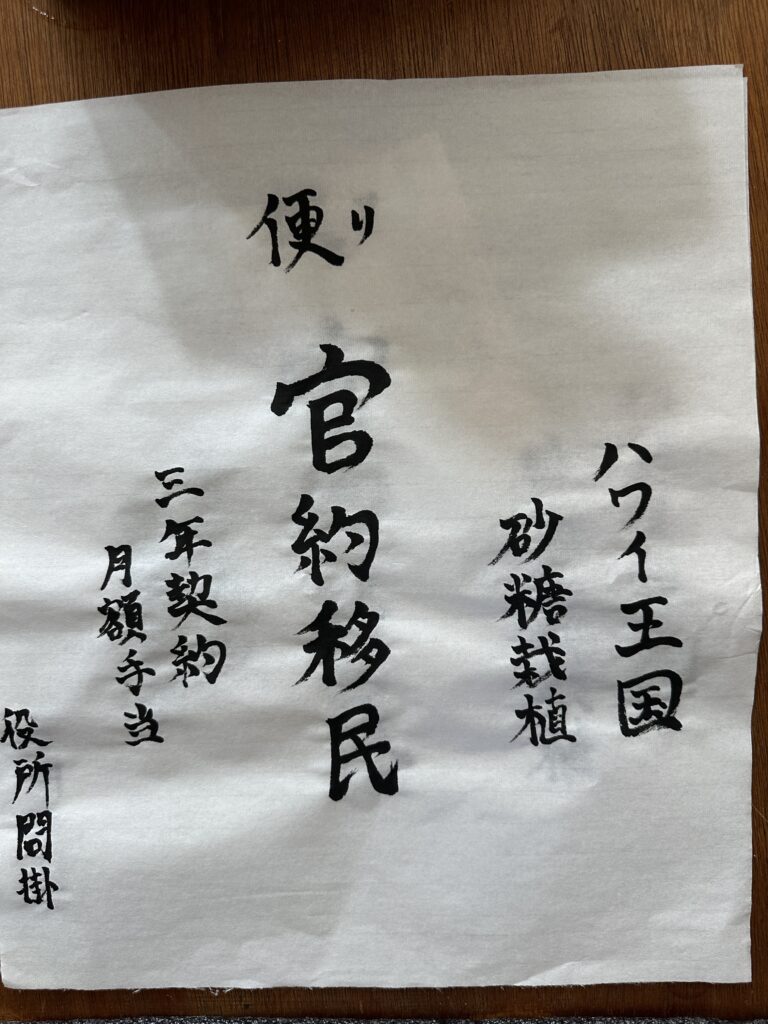 ハワイ王国
砂糖栽植
便り
官約移民
三年契約
月額手当
役所問掛